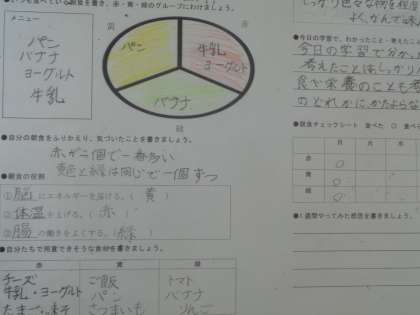 いつも食べている朝食を書き、赤・黄・緑のグループにわけましょう。
メニュー
パン
バナナ
ヨーグルト
牛乳
黄
赤
緑
パン
牛乳
ヨーグルト
バナナ
●自分の朝食をふりかえり、気づいたことを書きましょう。
赤が2個で一番多い
黄色と緑は同じで一個ずつ
●朝食の役割
①脳にエネルギーを届ける。（黄）
②体温を上げる。（赤）
③腸の働きをよくする。（緑）
●自分たちで用意できそうな食材を書きましょう。
赤 黄 緑
チーズ ご飯 トマト
牛乳・ヨーグルト パン バナナ
たまご さつまいも りんご
しっかり色々な物を
よくかんで
●今日の学習で、わかったこと・考えたこと
今日の学習で分かっ
考えたことはしっかり
食や栄養のことも考
のどれかに、かたよらな
●朝食チェックシート 食べた ○ 食べ
月 火 水
赤 ○
黄 ○
緑 ○
●1週間やってみた感想を書きましょう。